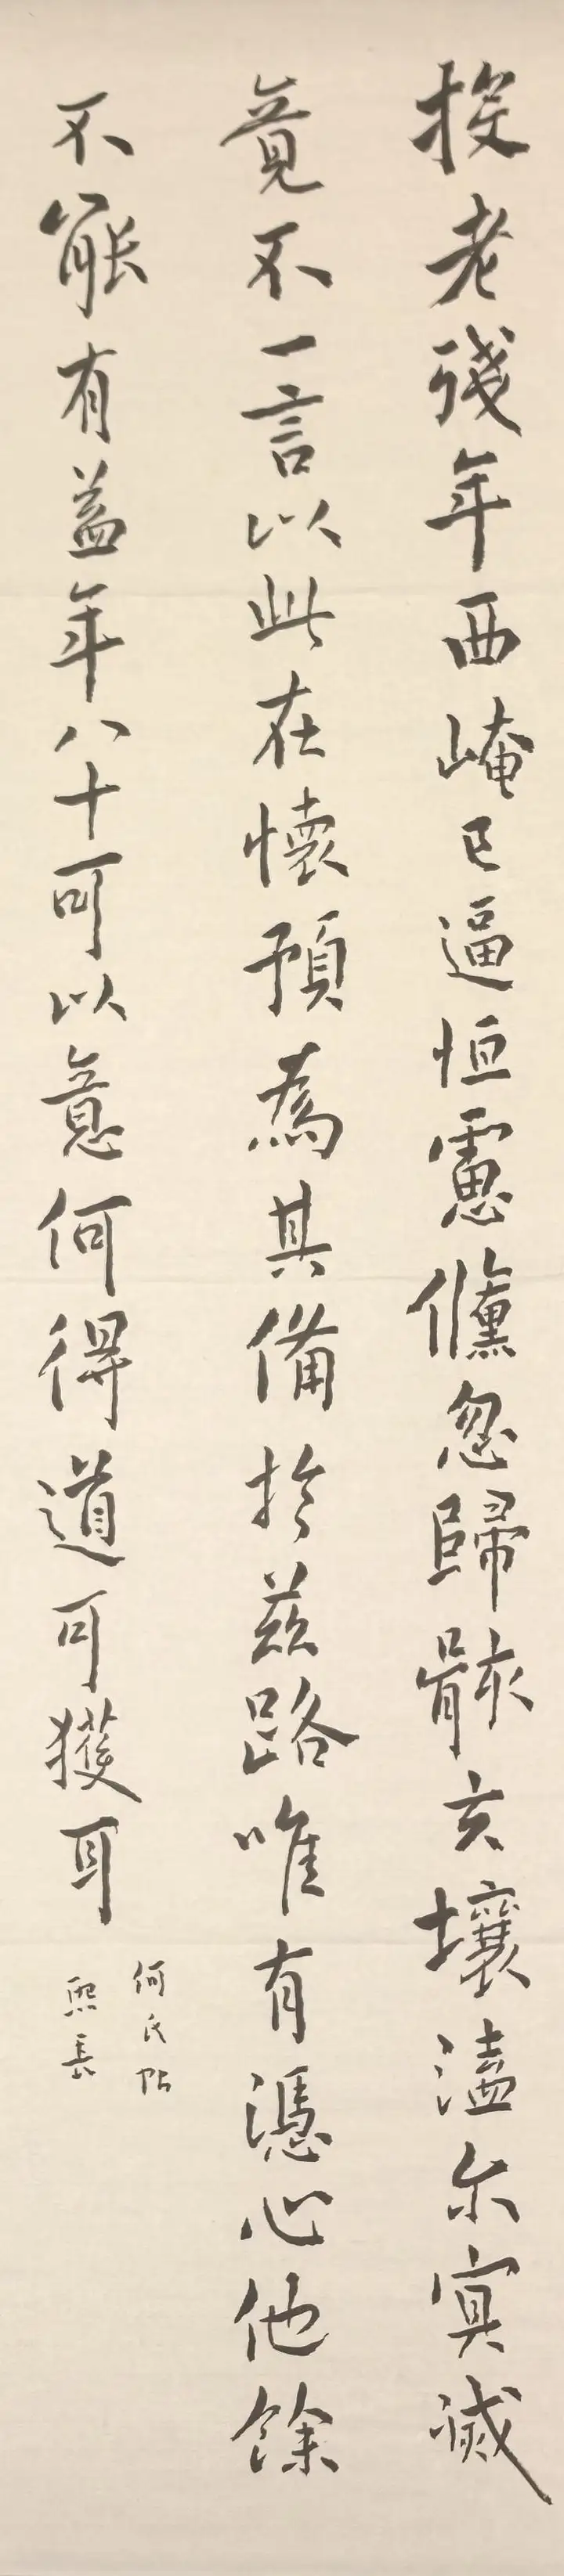 投老殘年西崦已逼恒慮儵忽歸骸玄壤溘尔寘滅
竟不一言以此在懷預為其備於茲路唯有憑心他餘
不能有益年八十可以意何得道可獲耳
何氏帖
熙長